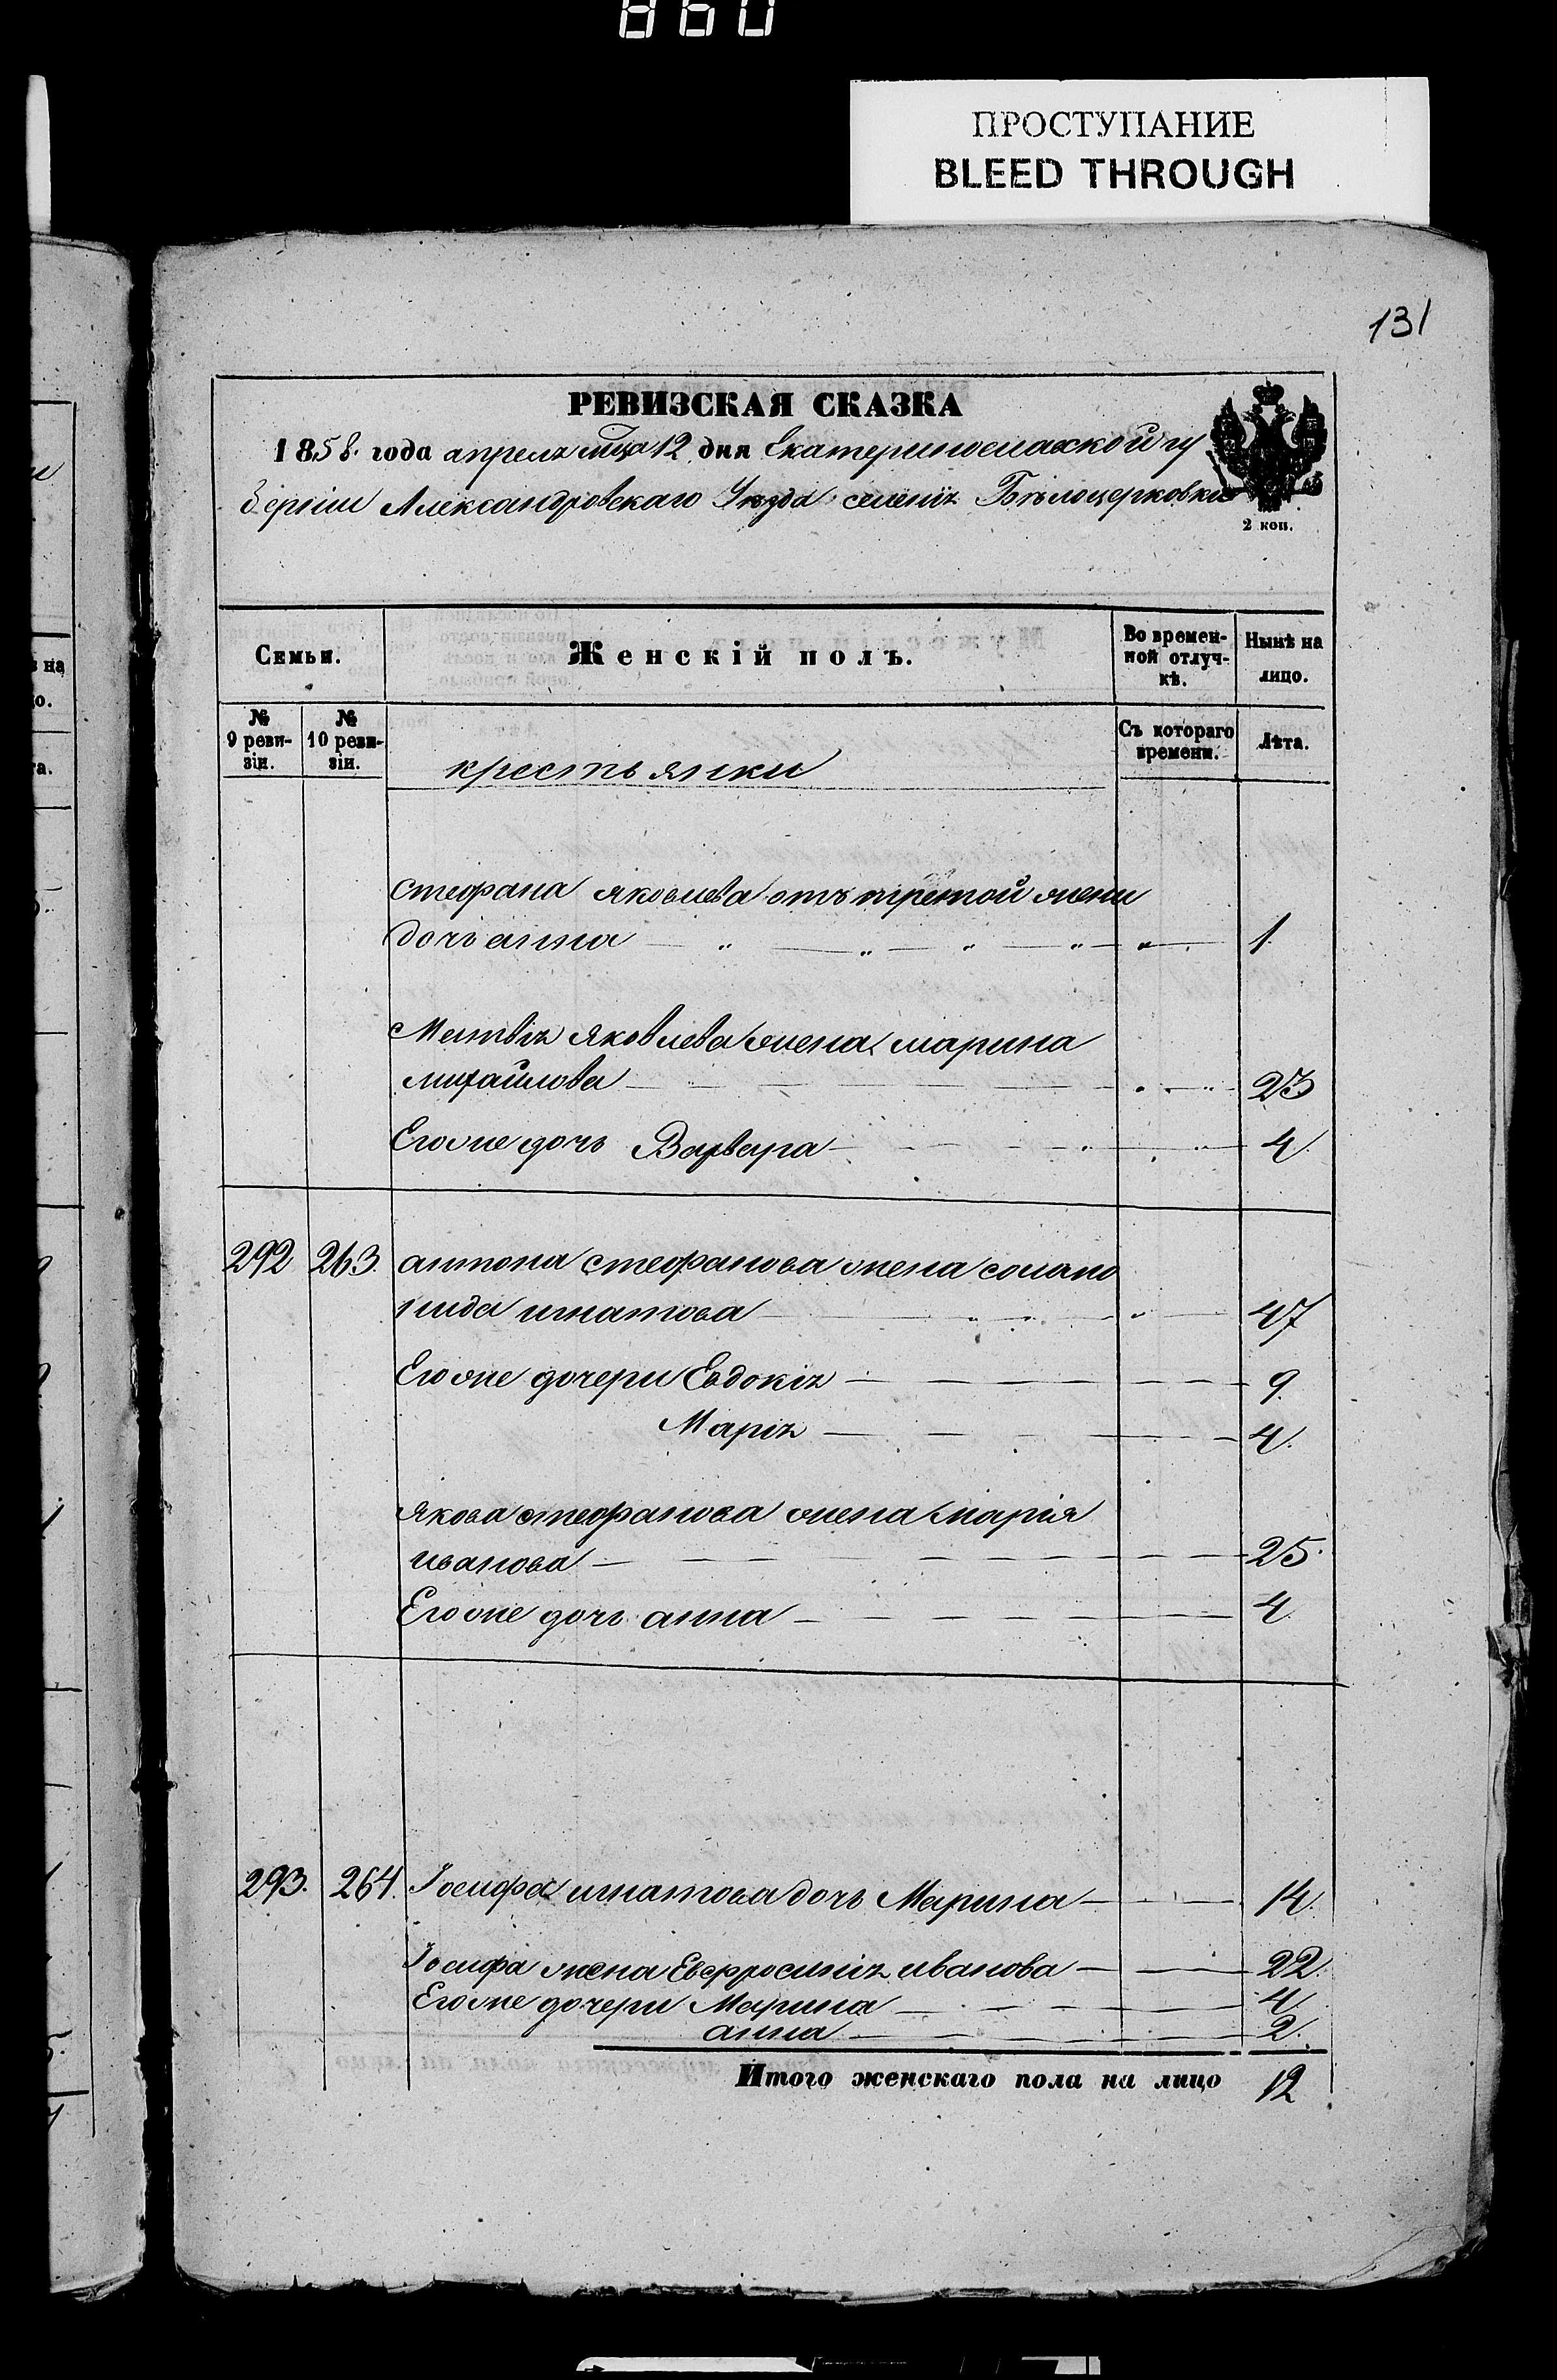 860
ПРОСТУПАНИЕ
BLEED THROUGH
131
РЕВИЗСКАЯ СКАЗКА
1858. года апреля мца 12 дня Екатеринославской гу
берніи Александровскаго Уезда селенія Бѣлоцерковки
2 коп.
Семьи.
Женскій полъ.
Во времен-
ной отлуч-
кѣ.
Нынѣ на
лицо.
№
9 реви-
зіи.
№
10 реви-
зіи.
крестьянки
Съ котораго
времени.
Лѣта.
Стефана Яковлева отъ третой жени
дочь анна 1.
Матвія Яковлева жена марина
михайлова 23
Его же дочь Варвара 4.
292 263. антона стефанова жена соломо
нида игнатова 47
Его же дочери Евдокія 9.
Марія 4.
Якова стефанова жена Марія
иванова 25.
Его же дочь анна 4.
293. 264. Іосифа игнатова дочь Марина 14.
Іосифа жена Евфросинія иванова 22.
Его же дочери Марина 4.
анна 2.
Итого женскаго пола на лицо 12